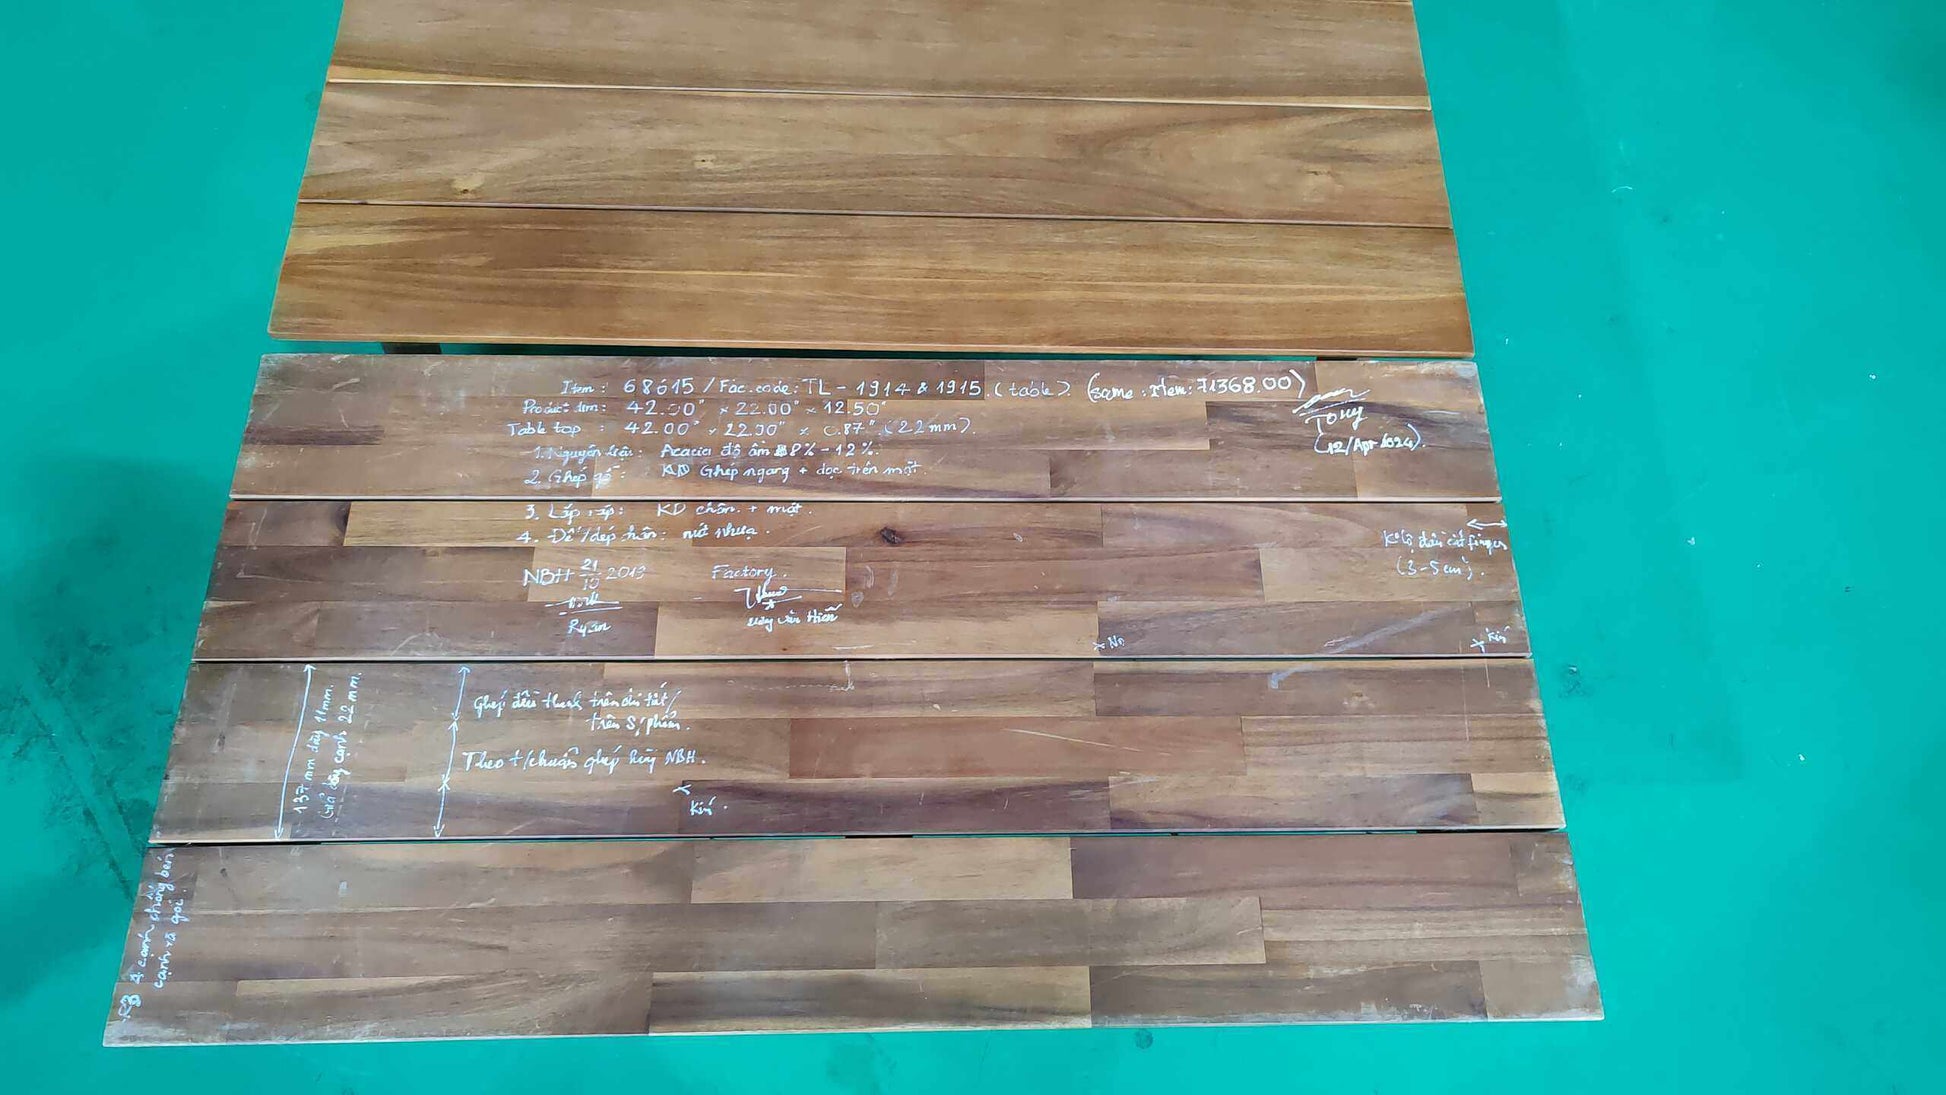 Item: 68615 / Fac.code: TL - 1914 & 1915. (table). (same: Item: 71368.00)
Product dim: 42.00" x 22.00" x 12.50"
Table top : 42.00" x 22.00" x 0.87" (22mm).
Tony
(12/Apr 2024).
1. Nguyên liệu: Acacia độ ẩm 8% - 12%.
2. Ghép gỗ: KD Ghép ngang + dọc trên mặt.
3. Lắp ráp: KD chân + mặt.
4. Đế/dép chân: nút nhựa.
NBH 21/10 2013
Ryan
Factory.
Hiền
lộ đầu cắt finger
(3-5cm).
x No
x Kín
137mm dày 11mm.
dày cạnh 22mm.
Ghép đều thanh trên chi tiết/
trên S/phẩm.
Theo t/chuẩn ghép NBH.
x
Kín.
4 cạnh
cạnh và gói.